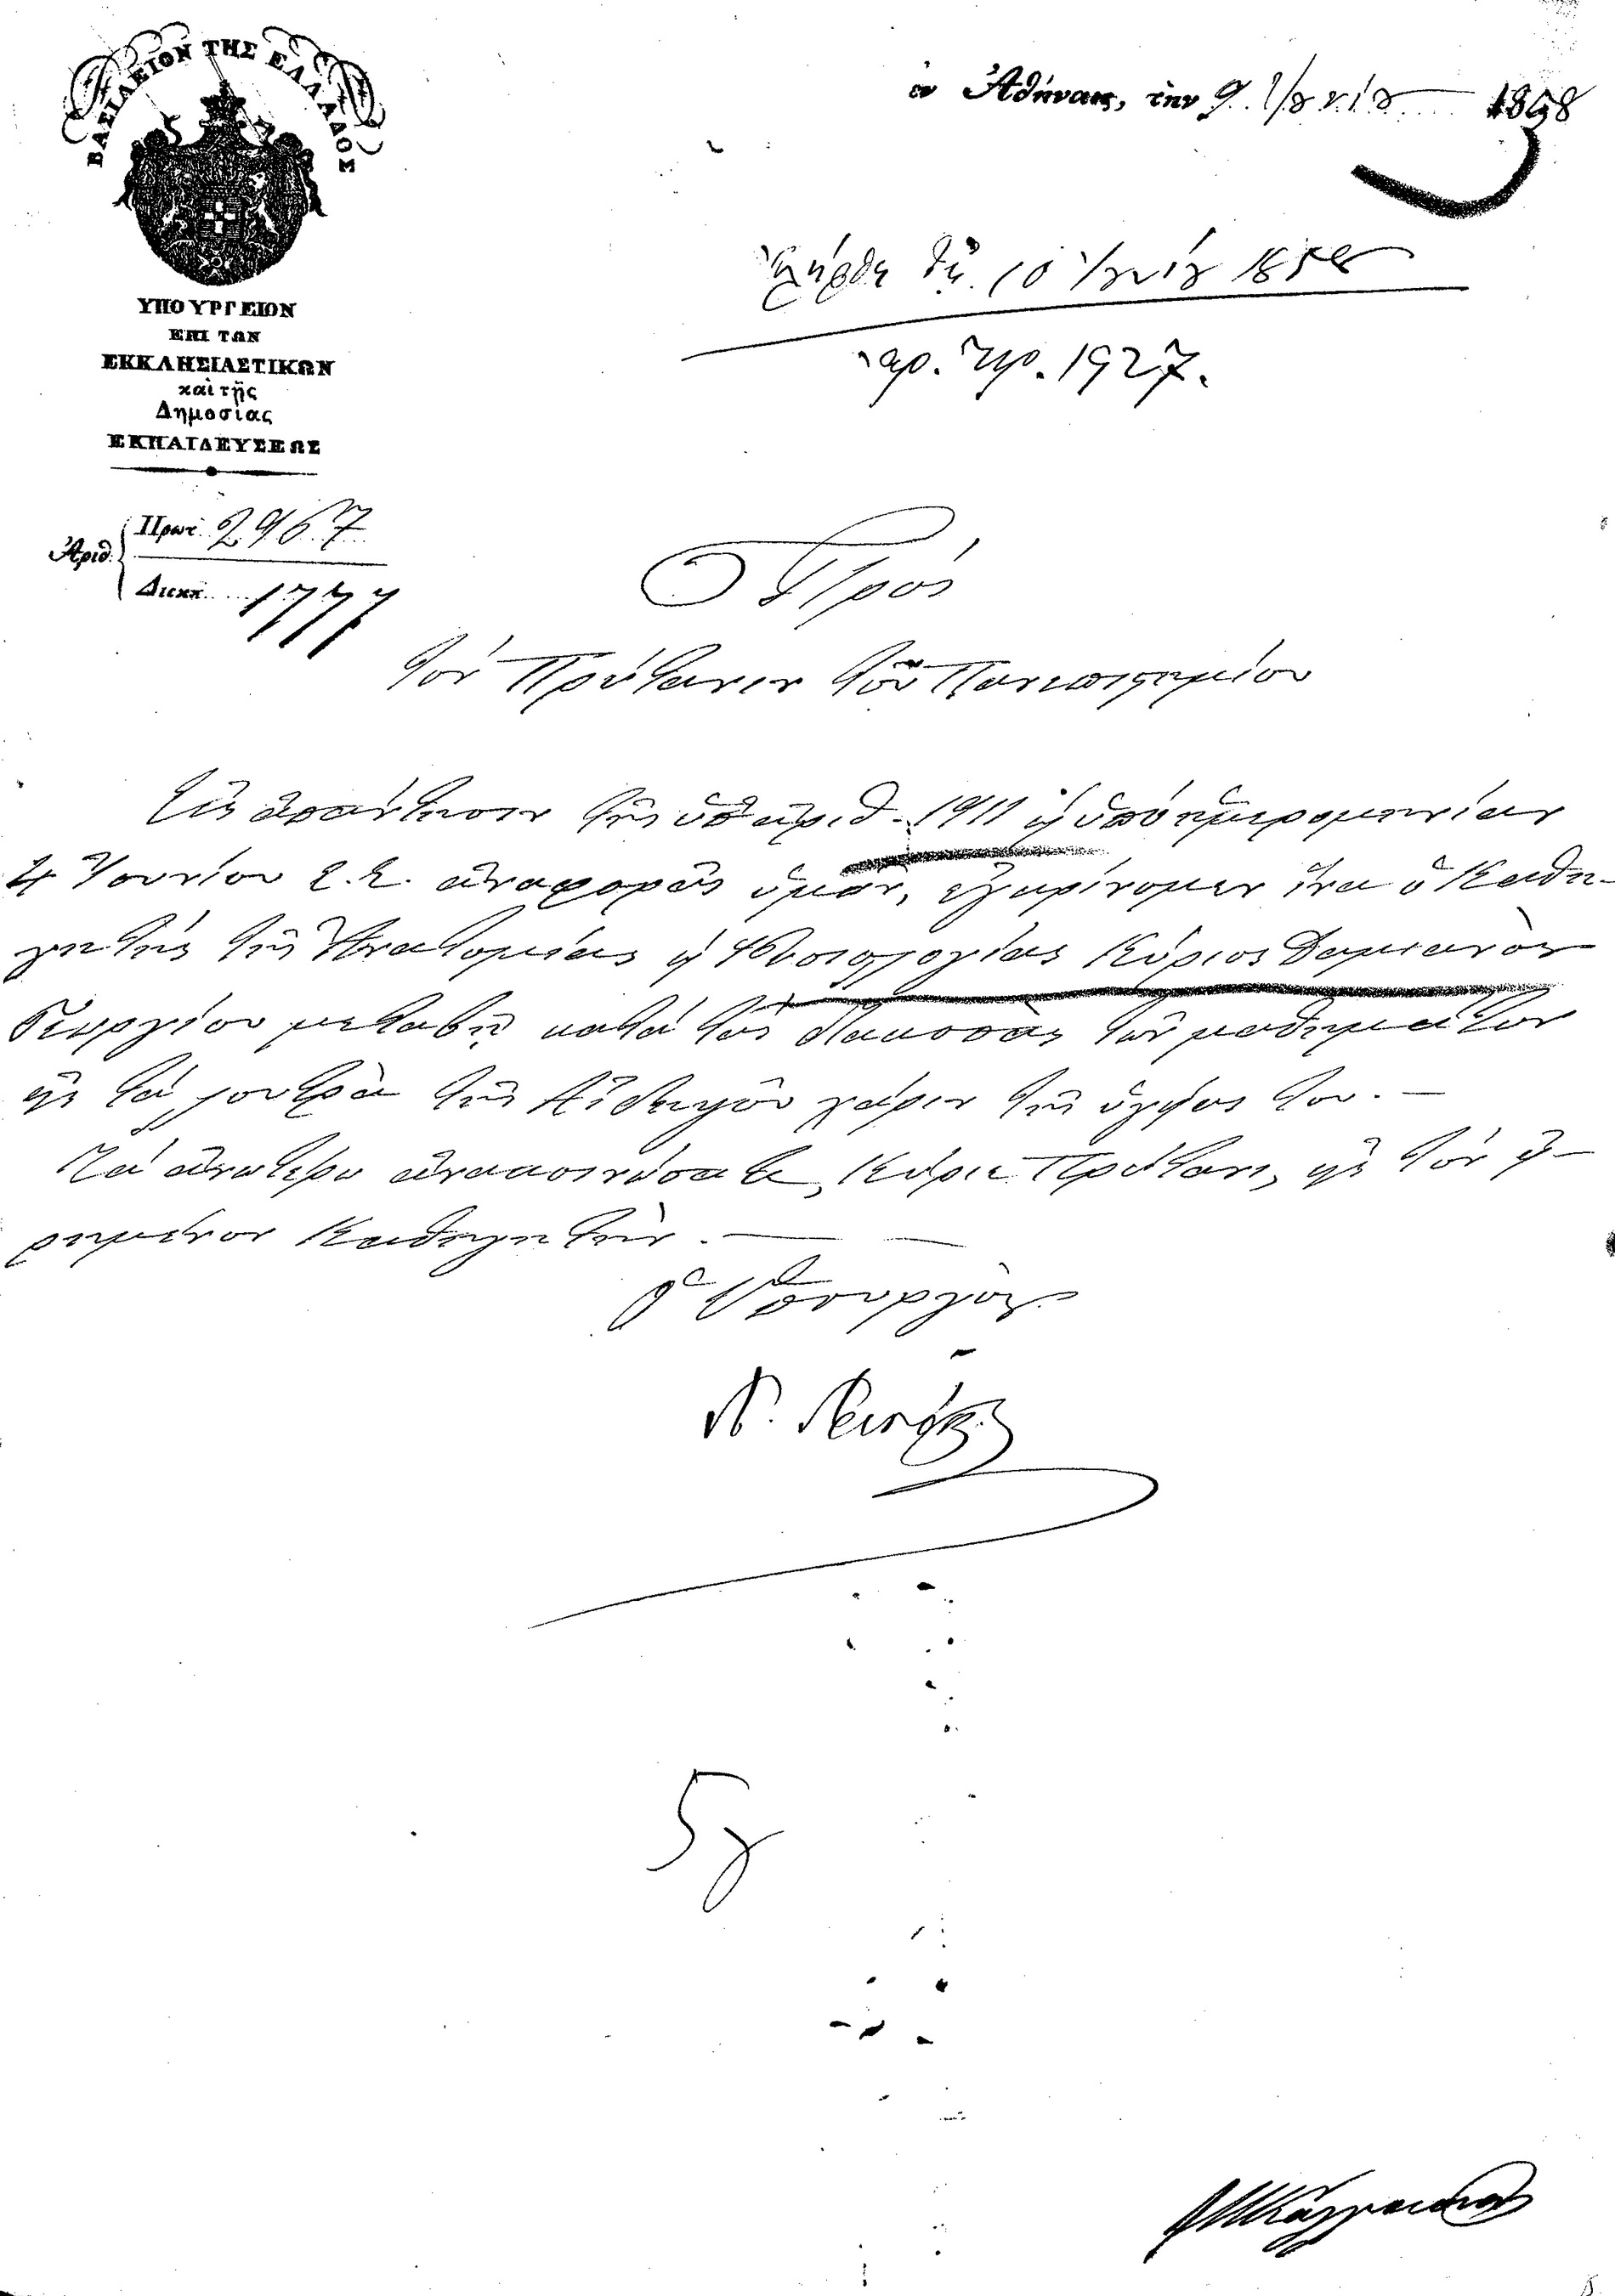 ΒΑΣΙΛΕΙΟΝ ΤΗΣ ΕΛΛΑΔΟΣ
ΥΠΟΥΡΓΕΙΟΝ
ΕΠΙ ΤΩΝ
ΕΚΚΛΗΣΙΑΣΤΙΚΩΝ
καὶ τῆς
Δημοσίας
ΕΚΠΑΙΔΕΥΣΕΩΣ
Ἀριθ. Πρωτ. 2967
Διεκπ. 1777
ἐν Ἀθήναις, τὴν 9 Ἰουνίου 1858
ἐλήφθη τῇ 10 Ἰουνίου 1858
ἀρ. πρ. 1927.
Πρὸς
τὸν Πρύτανιν τοῦ Πανεπιστημίου
Εἰς ἀπάντησιν τῆς ὑπ' ἀριθ. 1911 καὶ ὑπὸ ἡμερομηνίαν
4 Ἰουνίου ἀναφορᾶς ὑμῶν, ἐγκρίνομεν ἵνα ὁ Καθη-
γητὴς τῆς Ἀνατομίας καὶ Φυσιολογίας Κύριος Δαμιανὸς
Γεωργίου μεταβῇ κατὰ τὰς διακοπὰς τῶν μαθημάτων
εἰς τὰ λουτρὰ τῆς Αἰδηψοῦ χάριν τῆς ὑγείας του. —
Τὰ ἀνωτέρω ἀνακοινώσατε, Κύριε Πρύτανι, εἰς τὸν εἰ-
ρημένον Καθηγητήν. —
Ὁ Ὑπουργὸς
5γ